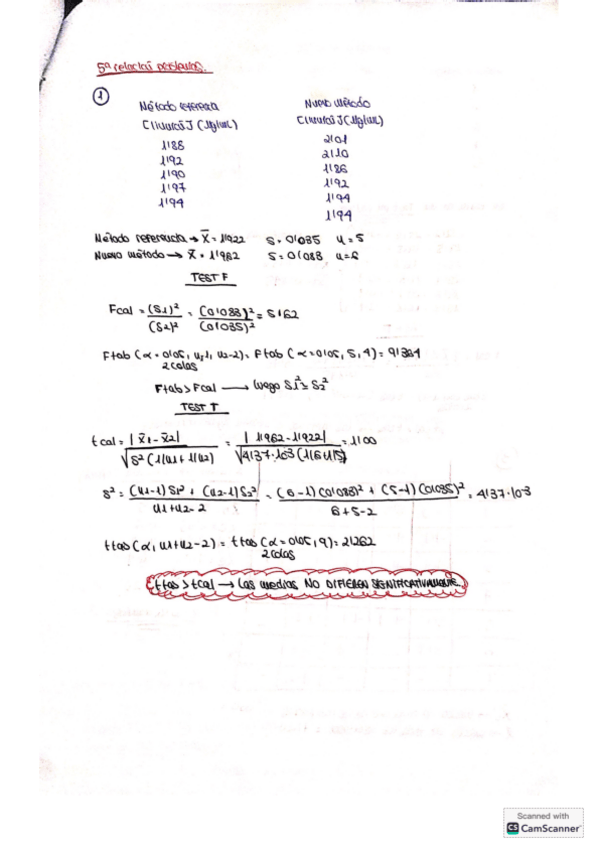 5ª relación problemas.
1
Método referencia Nuevo método
C [Invasí] (µg/mL) C [Invasí] (µg/mL)
1'88 2'01
1'92 2'10
1'90 1'86
1'97 1'92
1'94 1'94
1'94
Método referencia → X̄ = 1'922 S = 0'035 n = 5
Nuevo método → X̄ = 1'962 S = 0'088 n = 6
TEST F
Fcal = (S1)² / (S2)² = (0'088)² / (0'035)² = 5'62
Ftab (α = 0'05, n1-1, n2-2) = Ftab (α = 0'05, 5, 4) = 9'364
2 colas
Ftab > Fcal → luego S1² = S2²
TEST T
tcal = |X̄1 - X̄2| / √S² (1/n1 + 1/n2) = |1'962 - 1'922| / √4'37·10³ (1/6 + 1/5) = 1'00
S² = (n1-1) S1² + (n2-1) S2² / n1 + n2 - 2 = (6-1) (0'088)² + (5-1) (0'035)² / 6 + 5 - 2 = 4'37·10³
ttab (α, n1+n2-2) = ttab (α = 0'05, 9) = 2'262
2 colas
ttab > tcal → Las medias NO DIFIEREN SIGNIFICATIVAMENTE.
Scanned with
CS CamScanner